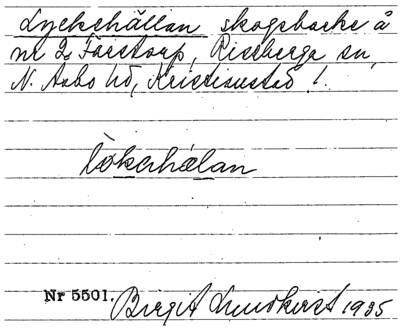 Lyckehällan skogsbacke å
nr 2 Färstorp, Riseberga sn,
N. Åsbo hd, Kristianstad l.
lökəhälan
Nr 5501. Birgit Lundkvist 1935